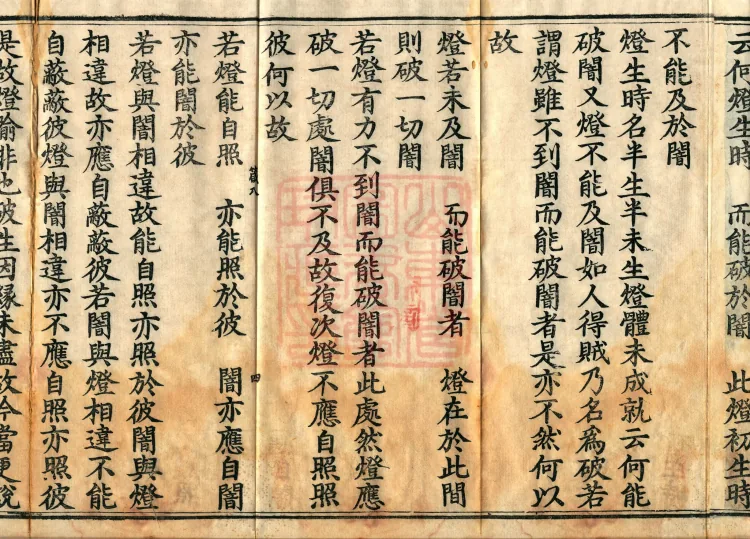 云何燈生時　而能破於闇　此燈初生時
不能及於闇
燈生時名半生半未生燈體未成就云何能
破闇又燈不能及闇如人得賊乃名爲破若
謂燈雖不到闇而能破闇者是亦不然何以
故
燈若未及闇　而能破闇者　燈在於此間
則破一切闇
若燈有力不到闇而能破闇者此處然燈應
破一切處闇俱不及故復次燈不應自照照
彼何以故
若燈能自照　亦能照於彼　闇亦應自闇
亦能闇於彼
若燈與闇相違故能自照亦照於彼闇與燈
相違故亦應自蔽蔽彼若闇與燈相違不能
自蔽蔽彼燈與闇相違亦不應自照亦照彼
是故燈喻非也破生因緣未盡故今當更說